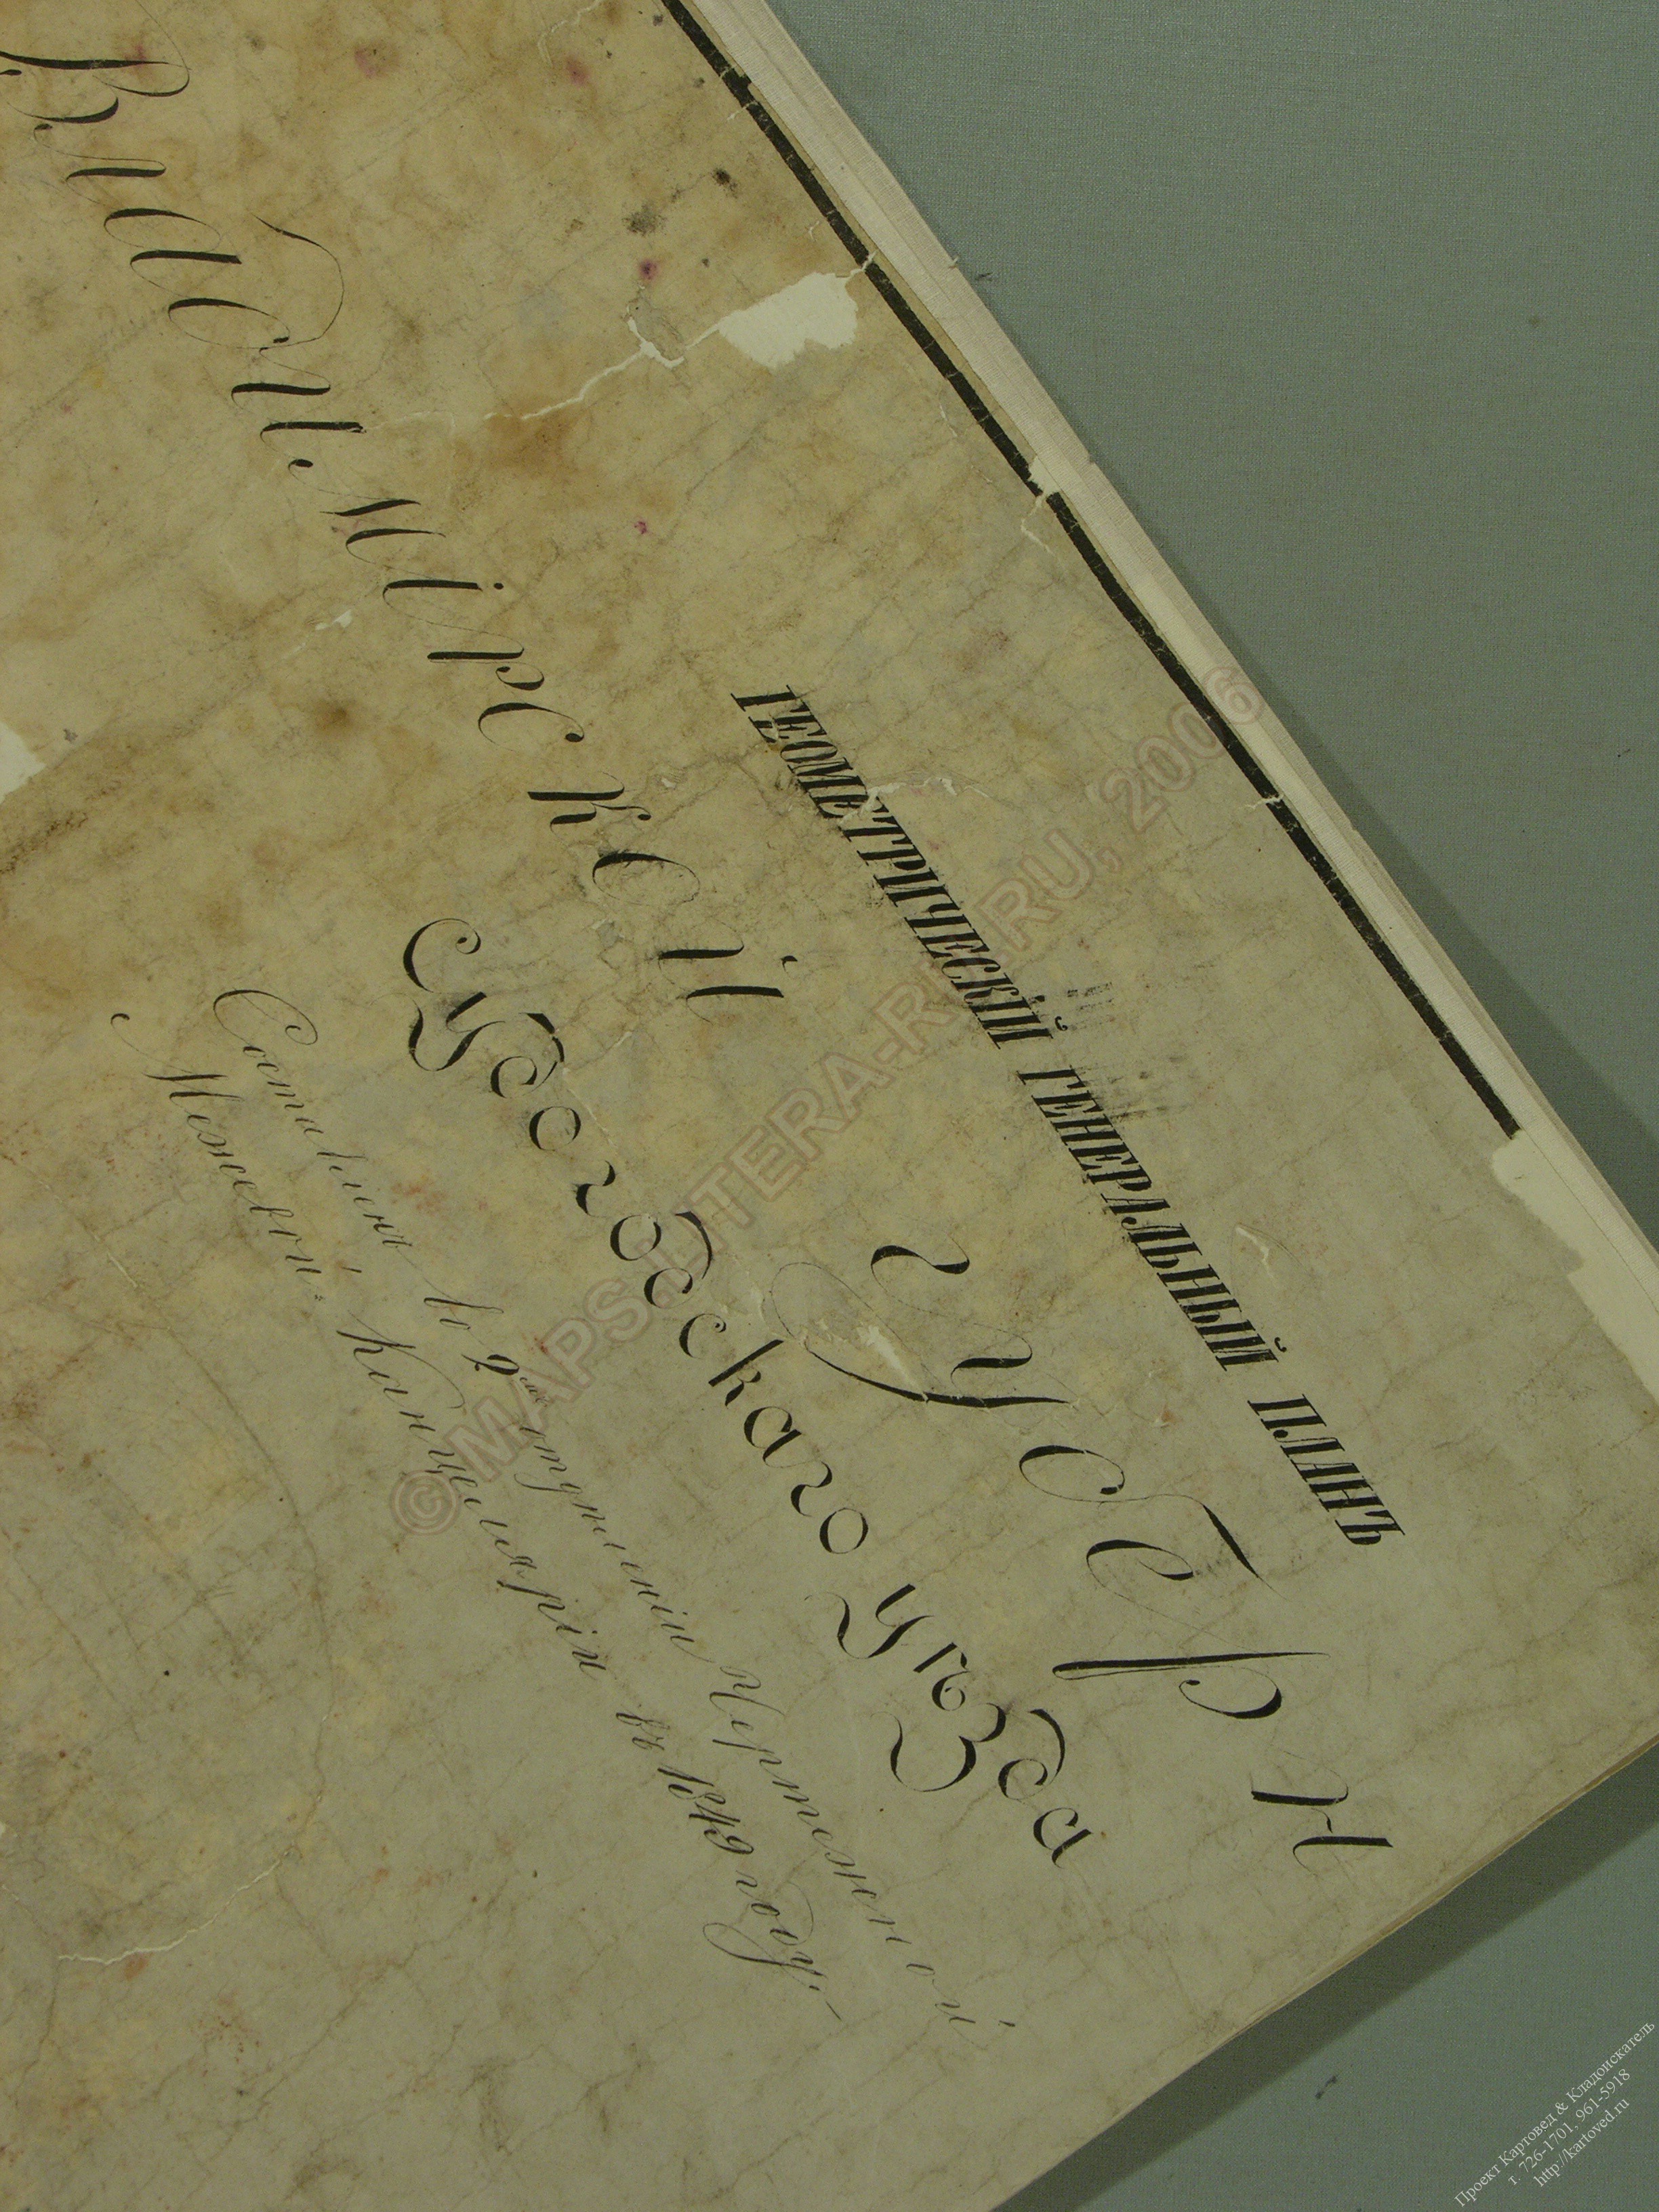 ГЕОМЕТРИЧЕСКІЙ ГЕНЕРАЛЬНЫЙ ПЛАНЪ
Владимірской Губерн
Судогодскаго уѣзда
Составленъ во 2мъ отдѣленіи Чертежной
Межевой Канцеляріи въ 1849 году.
© MAPS.LITERA-RU.RU, 2006
Проект Картовед & Кладоискатель
т. 726-1701, 961-5918
http://kartoved.ru